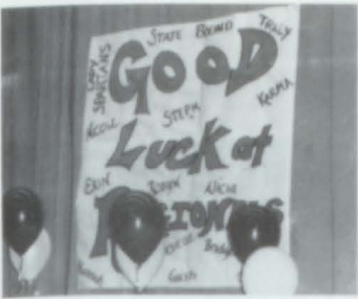 LADY SPARTANS
STATE BOUND
TRACY
GOOD
KARMA
NICOLE
STEPH
Luck at
ERIN
ROBYN
ALICIA
REGIONALS